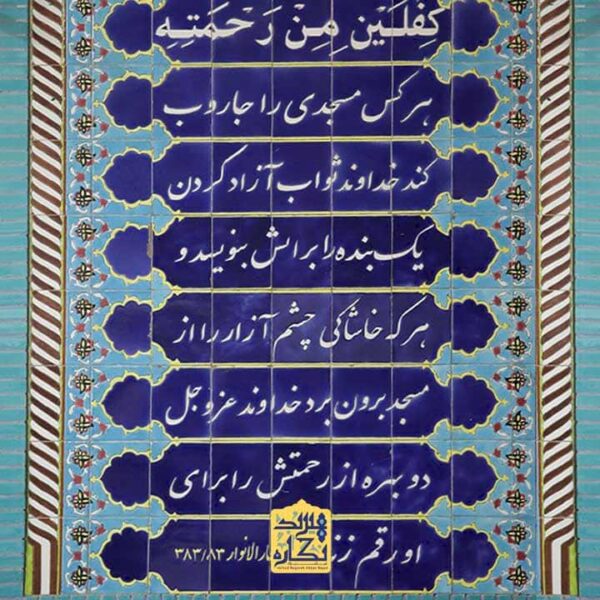 كِفْلَيْنِ مِنْ رَحْمَتِهِ
هر کس مسجدی را جاروب
کند خداوند ثواب آزاد کردن
یک بنده را برایش بنویسد و
هر که خاشاکی چشم آزار را از
مسجد برون برد خداوند عزوجل
دو بهره از رحمتش را برای
او رقم زند ۳۸۳/۸۳ الانوار